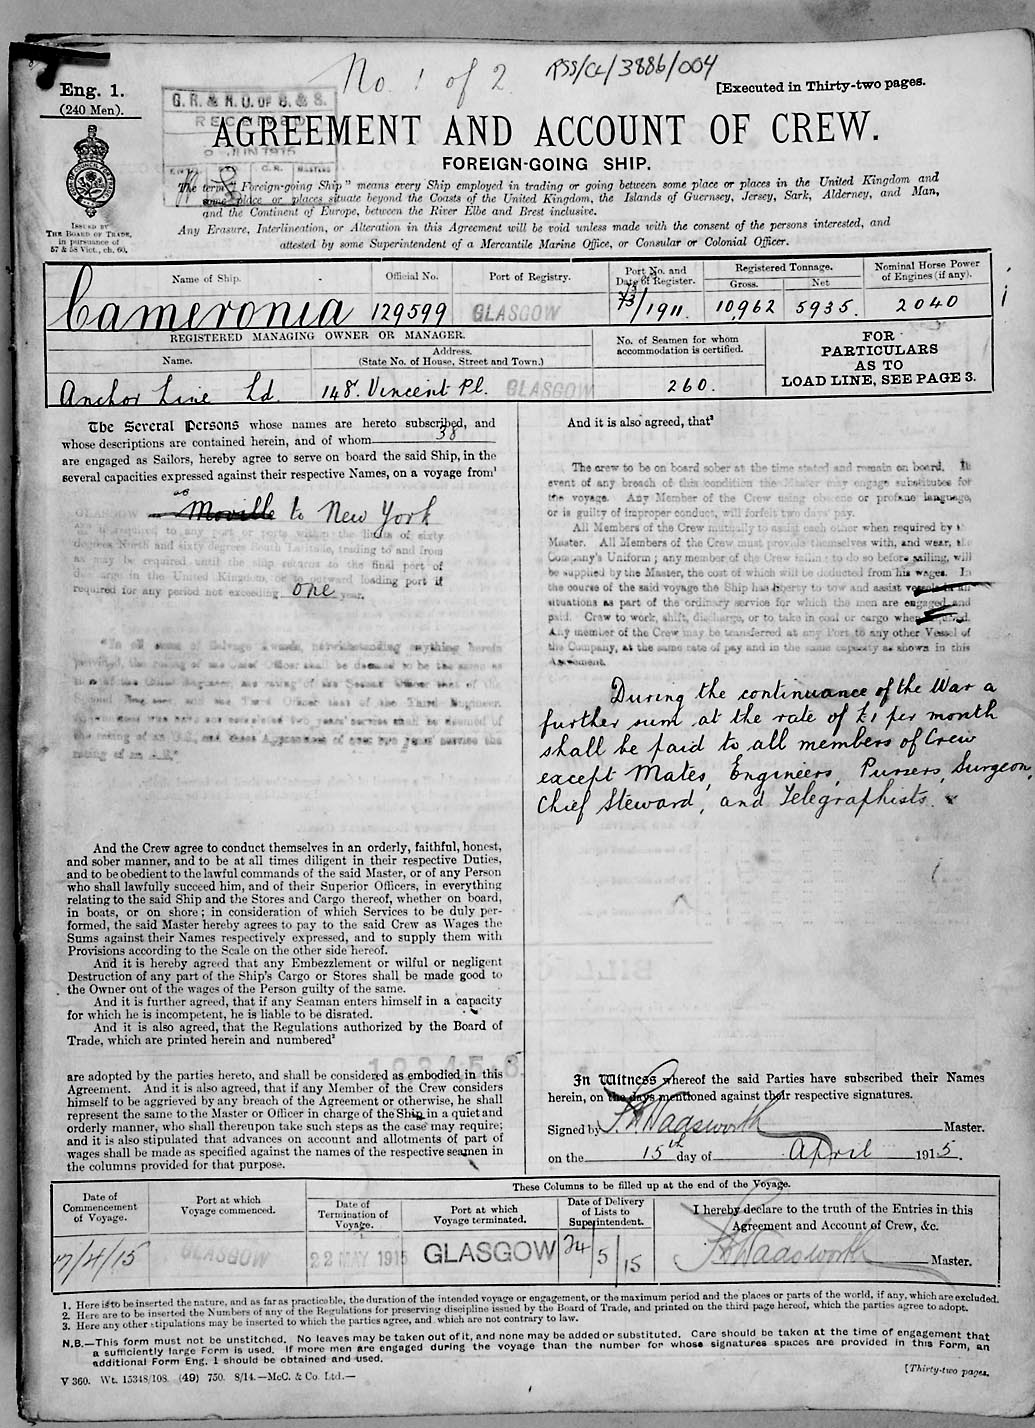 No. 1 of 2 RSS/CL/3886/004
[Executed in Thirty-two pages.
Eng. 1.
(240 Men).
G. R. & R. O. OF S. & S.
RECEIVED
JUN 1915
AGREEMENT AND ACCOUNT OF CREW.
FOREIGN-GOING SHIP.
The term "Foreign-going Ship" means every Ship employed in trading or going between some place or places in the United Kingdom and
some place or places situate beyond the Coasts of the United Kingdom, the Islands of Guernsey, Jersey, Sark, Alderney, and Man,
and the Continent of Europe, between the River Elbe and Brest inclusive.
Any Erasure, Interlineation, or Alteration in this Agreement will be void unless made with the consent of the persons interested, and
attested by some Superintendent of a Mercantile Marine Office, or Consular or Colonial Officer.
ISSUED BY
THE BOARD OF TRADE,
in pursuance of
57 & 58 Vict., ch. 60.
Name of Ship. Official No. Port of Registry. Port No. and Date of Register. Registered Tonnage. Gross. Net Nominal Horse Power of Engines (if any).
Cameronia 129599 GLASGOW /1911. 10,962 5935. 2040
REGISTERED MANAGING OWNER OR MANAGER.
Name. Address. (State No. of House, Street and Town.)
No. of Seamen for whom accommodation is certified.
FOR
PARTICULARS
AS TO
LOAD LINE, SEE PAGE 3.
Anchor Line Ld. 148. Vincent Pl. GLASGOW 260.
The Several Persons whose names are hereto subscribed, and
whose descriptions are contained herein, and of whom 38
are engaged as Sailors, hereby agree to serve on board the said Ship, in the
several capacities expressed against their respective Names, on a voyage from¹
GLASGOW Moville to New York
if required to any port or ports within the limits of sixty
degrees North and sixty degrees South Latitude, trading to and from
as may be required until the ship returns to the final port of
discharge in the United Kingdom, or to outward loading port if
required for any period not exceeding one year.
And the Crew agree to conduct themselves in an orderly, faithful, honest,
and sober manner, and to be at all times diligent in their respective Duties,
and to be obedient to the lawful commands of the said Master, or of any Person
who shall lawfully succeed him, and of their Superior Officers, in everything
relating to the said Ship and the Stores and Cargo thereof, whether on board,
in boats, or on shore; in consideration of which Services to be duly per-
formed, the said Master hereby agrees to pay to the said Crew as Wages the
Sums against their Names respectively expressed, and to supply them with
Provisions according to the Scale on the other side hereof.
And it is hereby agreed that any Embezzlement or wilful or negligent
Destruction of any part of the Ship's Cargo or Stores shall be made good to
the Owner out of the wages of the Person guilty of the same.
And it is further agreed, that if any Seaman enters himself in a capacity
for which he is incompetent, he is liable to be disrated.
And it is also agreed, that the Regulations authorized by the Board of
Trade, which are printed herein and numbered²
are adopted by the parties hereto, and shall be considered as embodied in this
Agreement. And it is also agreed, that if any Member of the Crew considers
himself to be aggrieved by any breach of the Agreement or otherwise, he shall
represent the same to the Master or Officer in charge of the Ship in a quiet and
orderly manner, who shall thereupon take such steps as the case may require;
and it is also stipulated that advances on account and allotments of part of
wages shall be made as specified against the names of the respective seamen in
the columns provided for that purpose.
And it is also agreed, that³
The crew to be on board sober at the time stated and remain on board. In
event of any breach of this condition the Master may engage substitutes for
the voyage. Any Member of the Crew using obscene or profane language,
or is guilty of improper conduct, will forfeit two days' pay.
All Members of the Crew mutually to assist each other when required by
Master. All Members of the Crew must provide themselves with, and wear, the
Company's Uniform; any member of the Crew failing to do so before sailing, will
be supplied by the Master, the cost of which will be deducted from his wages. In
the course of the said voyage the Ship has liberty to tow and assist vessels in all
situations as part of the ordinary service for which the men are engaged and
paid. Crew to work, shift, discharge, or to take in coal or cargo when required.
Any member of the Crew may be transferred at any Port to any other Vessel of
the Company, at the same rate of pay and in the same capacity as shown in this
Agreement.
During the continuance of the War a
further sum at the rate of £1 per month
shall be paid to all members of Crew
except Mates, Engineers, Pursers, Surgeon,
Chief Steward, and Telegraphists.
In Witness whereof the said Parties have subscribed their Names
herein, on the days mentioned against their respective signatures.
Signed by Wadsworth Master.
on the 15th day of April 1915.
These Columns to be filled up at the end of the Voyage.
Date of Commencement of Voyage. Port at which Voyage commenced. Date of Termination of Voyage. Port at which Voyage terminated. Date of Delivery of Lists to Superintendent.
I hereby declare to the truth of the Entries in this
Agreement and Account of Crew, &c.
17/4/15 GLASGOW 22 MAY 1915 GLASGOW 24/5/15 Wadsworth Master.
1. Here is to be inserted the nature, and as far as practicable, the duration of the intended voyage or engagement, or the maximum period and the places or parts of the world, if any, which are excluded.
2. Here are to be inserted the Numbers of any of the Regulations for preserving discipline issued by the Board of Trade, and printed on the third page hereof, which the parties agree to adopt.
3. Here any other stipulations may be inserted to which the parties agree, and which are not contrary to law.
N.B.—This form must not be unstitched. No leaves may be taken out of it, and none may be added or substituted. Care should be taken at the time of engagement that
a sufficiently large Form is used. If more men are engaged during the voyage than the number for whose signatures spaces are provided in this Form, an
additional Form Eng. 1 should be obtained and used.
V 360. Wt. 15348/108. (49) 750. 8/14.—McC. & Co. Ltd.—
[Thirty-two pages.